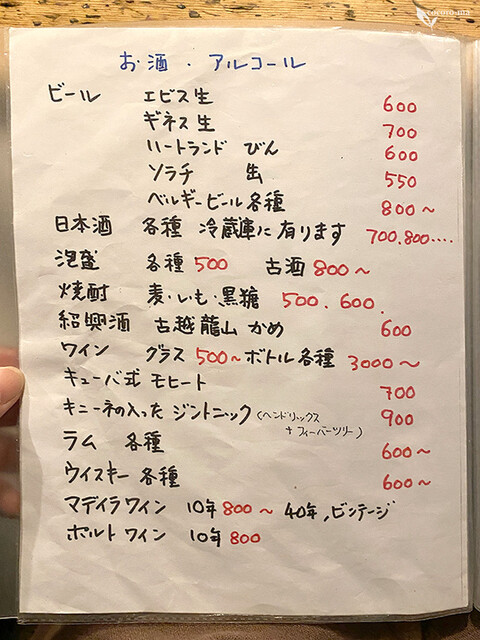 cocoro_ma
お酒・アルコール
ビール エビス生 600
ギネス生 700
ハートランド びん 600
ソラチ 生 550
ベルギービール各種 800～
日本酒 各種 冷蔵庫に有ります 700.800....
泡盛 各種 500 古酒 800～
焼酎 麦・いも・黒糖 500.600.
紹興酒 古越龍山 かめ 600
ワイン グラス 500～ ボトル各種 3000～
キューバ式 モヒート 700
キニーネの入った ジントニック(ヘンドリックス 900
+フィーバーツリー)
ラム 各種 600～
ウイスキー 各種 600～
マデイラワイン 10年 800～ 40年,ビンテージ
ポルトワイン 10年 800